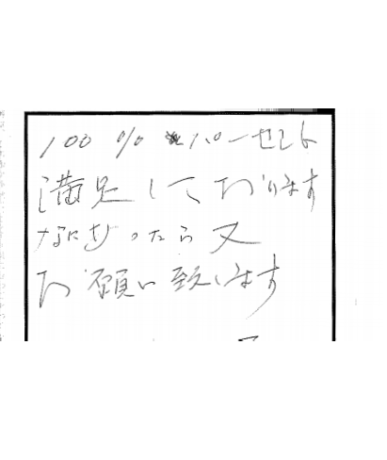 100% パーセント
満足しております
なにかあったら又
お願い致します